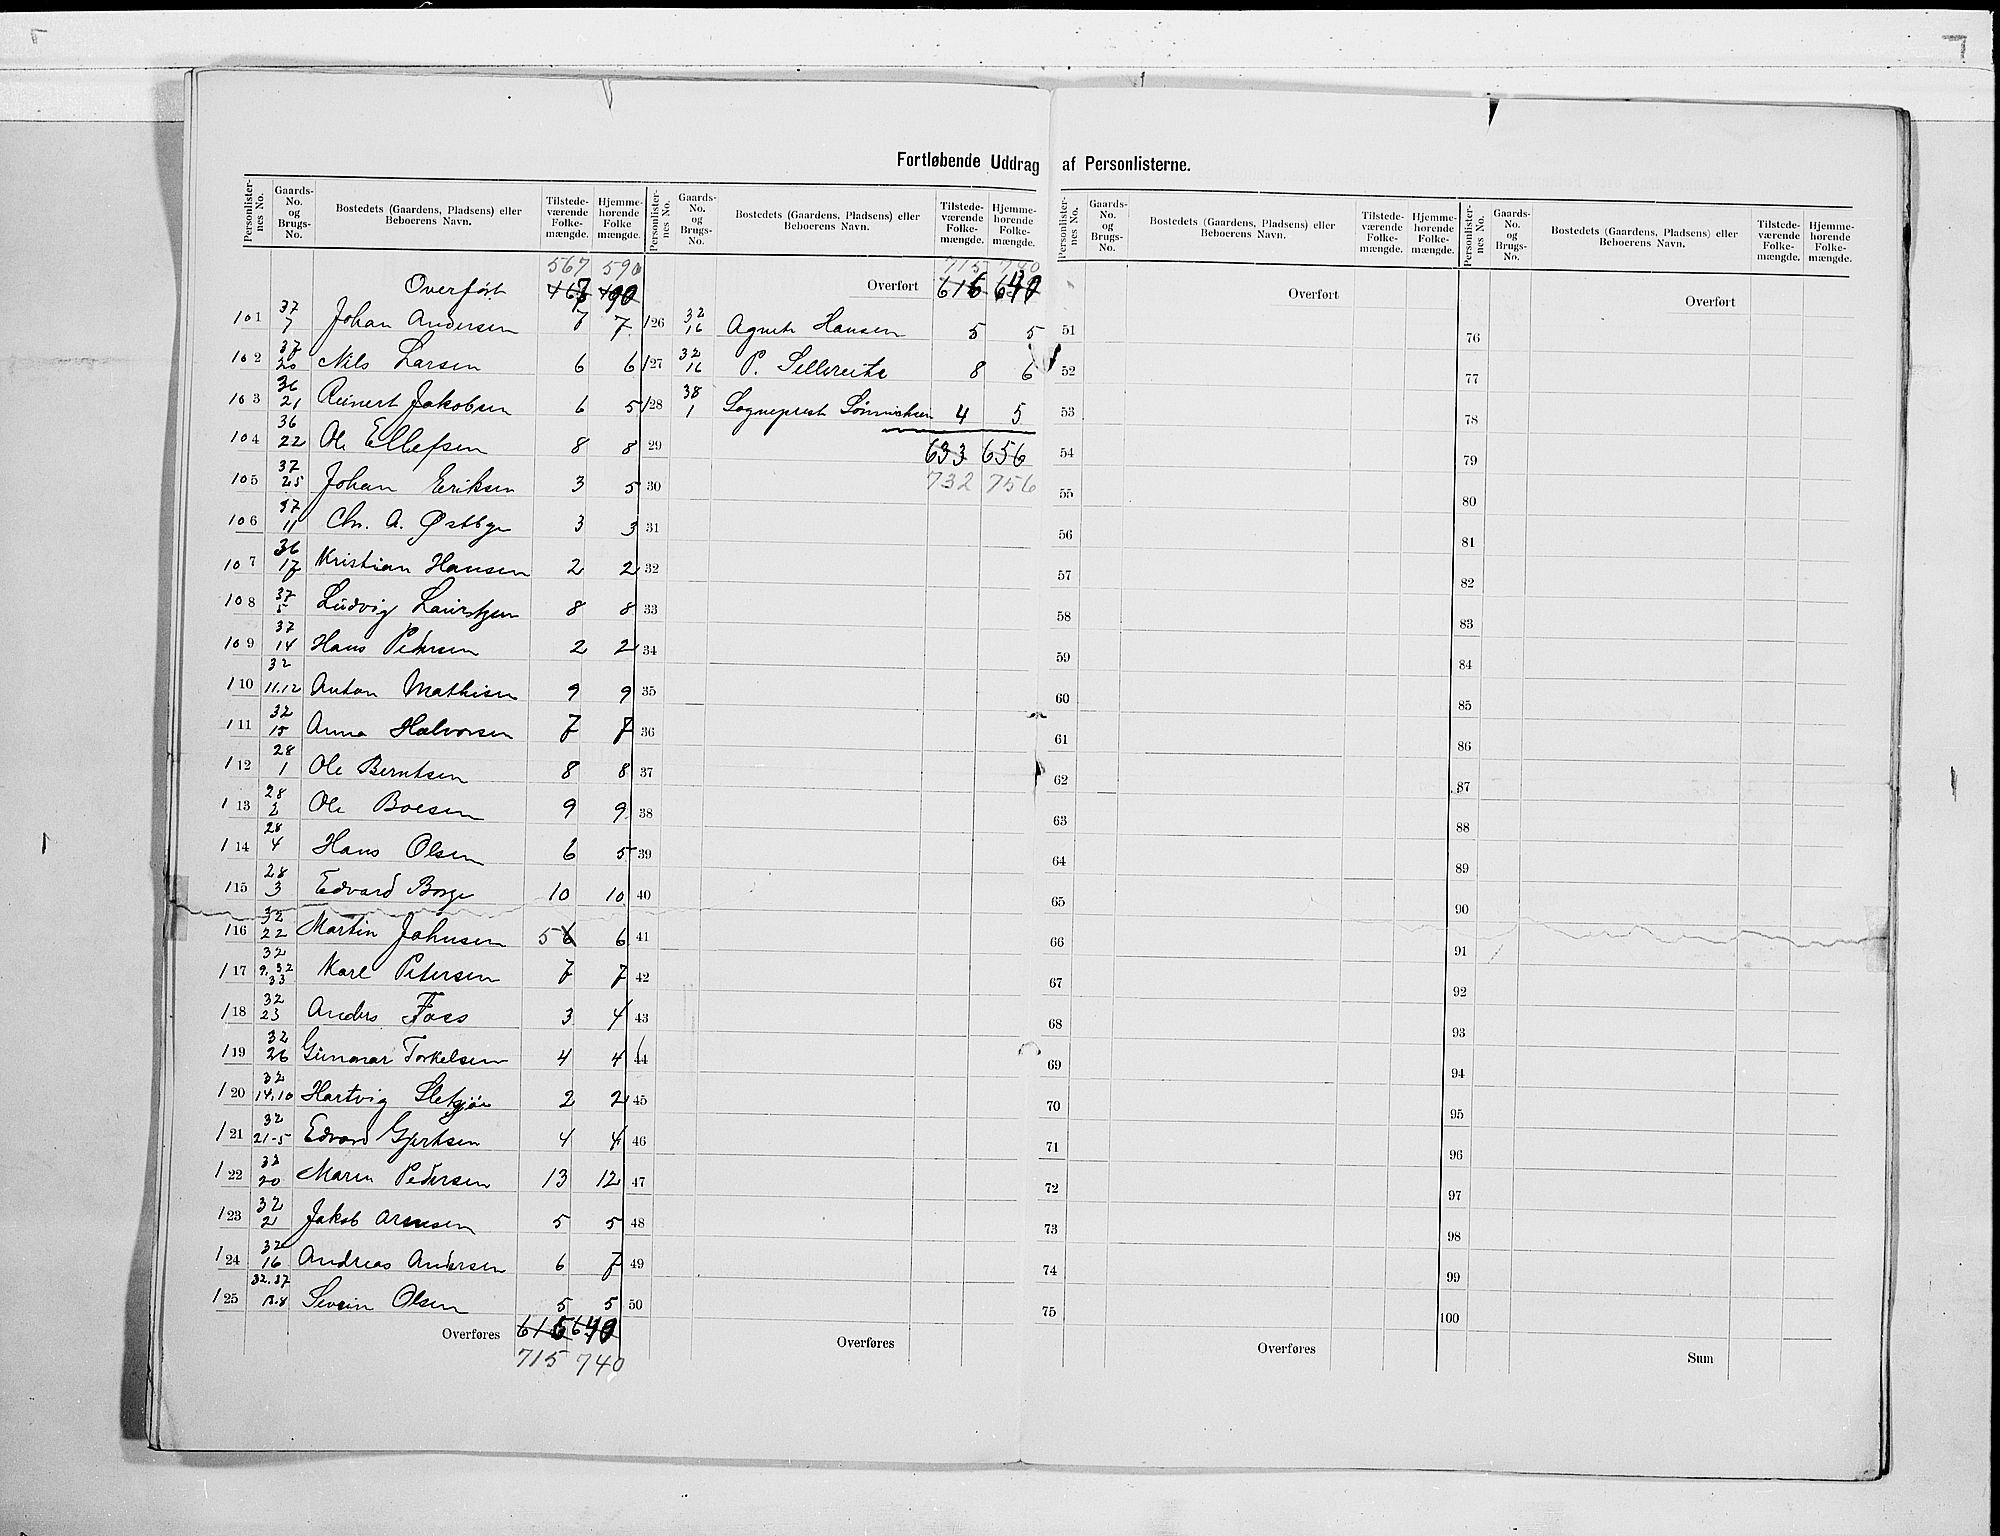 Fortløbende Uddrag af Personlisterne.
Personlister-nes No. Gaards-No. og Brugs-No. Bostedets (Gaardens, Pladsens) eller Beboerens Navn. Tilstede-værende Folke-mængde. Hjemme-hørende Folke-mængde.
567 590
Overført 467 490
101 37/7 Johan Andersen 7 7
102 37/20 Nils Larsen 6 6
103 36/21 Reinert Jakobsen 6 5
104 36/22 Ole Ellefsen 8 8
105 37/25 Johan Eriksen 3 5
106 37/11 Chr. A. Østbye 3 3
107 36/17 Kristian Hansen 2 2
108 37/5 Ludvig Lauritzen 8 8
109 37/14 Hans Pedersen 2 2
110 32/11.12 Anton Mathisen 9 9
111 32/15 Anna Halvorsen 7 7
112 28/1 Ole Berntsen 8 8
113 28/2 Ole Boesen 9 9
114 28/4 Hans Olsen 6 5
115 28/3 Edvard Borge 10 10
116 32/22 Martin Johnsen 5 6 6
117 32/9.32 33 Karl Petersen 7 7
118 32/23 Anders Foss 3 4
119 32/26 Gunnar Torkelsen 4 4
120 32/14.10 Hartvig Sletsjøe 2 2
121 32/21-5 Edvard Gjertsen 4 4
122 32/20 Maren Pedersen 13 12
123 32/2 Jakob Arnesen 5 5
124 32/16 Andreas Andersen 6 7
125 32.37/13.8 Severin Olsen 5 5
Overføres 615 640
715 740
Personlister-nes No. Gaards-No. og Brugs-No. Bostedets (Gaardens, Pladsens) eller Beboerens Navn. Tilstede-værende Folke-mængde. Hjemme-hørende Folke-mængde.
715 740
Overført 616 640
126 32/16 Agnete Hansen 5 5
127 32/16 P. Sellereite 8 6
128 38/1 Sogneprest Sønnichsen 4 5
29 633 656
30 732 756
31
32
33
34
35
36
37
38
39
40
41
42
43
44
45
46
47
48
49
50
Overføres
Personlister-nes No. Gaards-No. og Brugs-No. Bostedets (Gaardens, Pladsens) eller Beboerens Navn. Tilstede-værende Folke-mængde. Hjemme-hørende Folke-mængde.
Overført
51
52
53
54
55
56
57
58
59
60
61
62
63
64
65
66
67
68
69
70
71
72
73
74
75
Overføres
Personlister-nes No. Gaards-No. og Brugs-No. Bostedets (Gaardens, Pladsens) eller Beboerens Navn. Tilstede-værende Folke-mængde. Hjemme-hørende Folke-mængde.
Overført
76
77
78
79
80
81
82
83
84
85
86
87
88
89
90
91
92
93
94
95
96
97
98
99
100
Sum